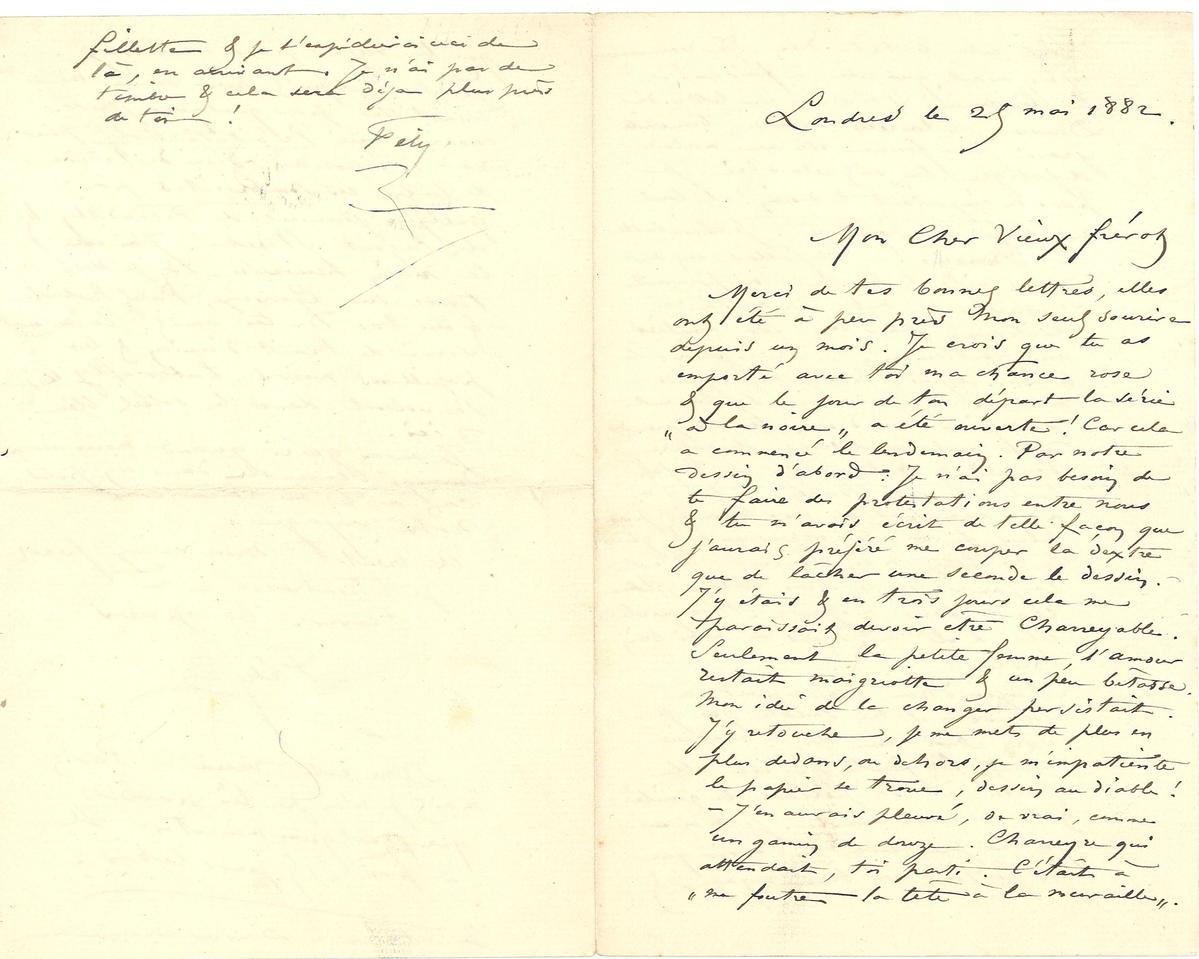 fillette & je t'expédierai ceci de
là, en arrivant. Je n'ai pas de
timbre & cela sera déjà plus près
de toi !
Fély
Londres le 25 mai 1882.
Mon Cher Vieux frérot
Merci de tes bonnes lettres, elles
ont été à peu près mon seul sourire
depuis un mois. Je crois que tu as
emporté avec toi ma chance rose
& que le jour de ton départ la série
„à la noire„ a été ouverte ! Car cela
a commencé le lendemain. Par notre
dessin d'abord : Je n'ai pas besoin de
te faire des protestations entre nous
& tu m'avais écrit de telle façon que
j'aurais préféré me couper la dextre
que de lâcher une seconde le dessin. –
J'y étais & en trois jours cela me
paraissait devoir être Charreyable.
Seulement la petite femme, l'amour
restait maigriotte & un peu bétasse.
Mon idée de la changer persistait.
J'y retouche, je me mets de plus en
plus dedans, ou dehors, je m'impatiente
le papier se troue, dessin au diable !
– J'en aurais pleuré, de vrai, comme
un gamin de douze. Charreyre qui
attendait, toi parti. C'était à
„me foutre la tête à la muraille„.